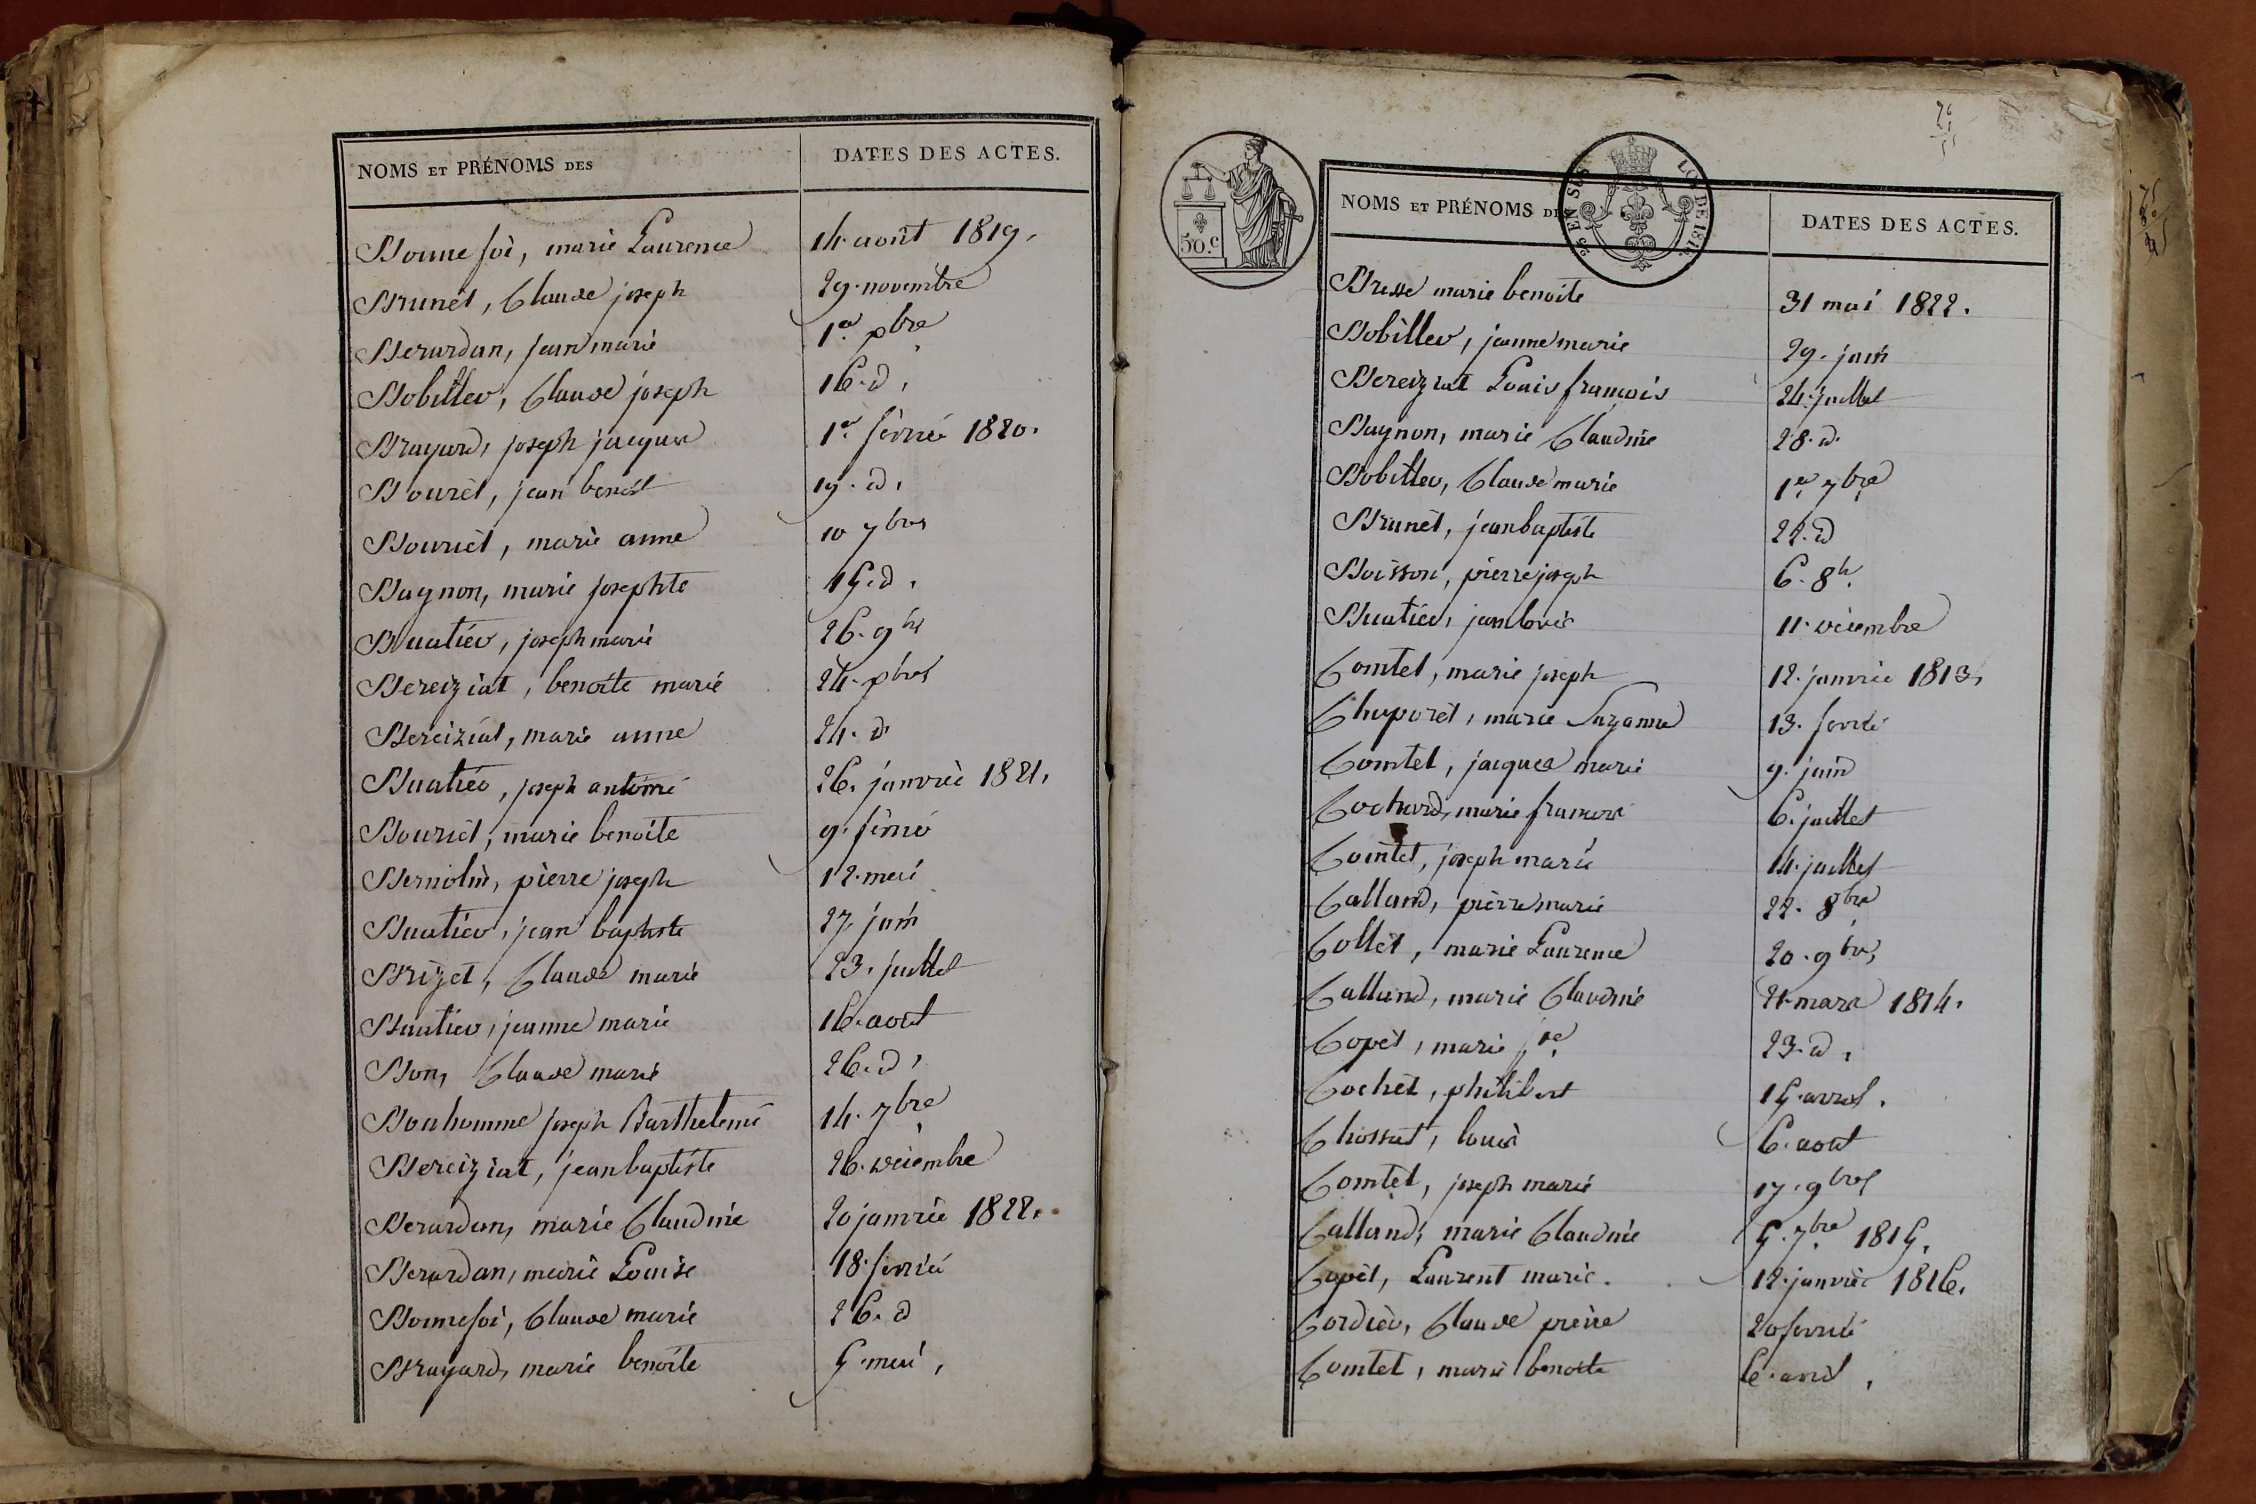 NOMS ET PRÉNOMS DES DATES DES ACTES.
Bonnefoi, marie Laurence 14. août 1819.
Brunet, Claude joseph 29. novembre
Berardan, jean marie 1er xbre
Bobillev, Claude joseph 16. d.
Brayard, joseph jacques 1er février 1820.
Bouret, jean benoit 19. d.
Bouriet, marie anne 10 7bre
Bagnon, marie josephte 15. d.
Buatiev, joseph marie 26. 9bre
Bereiziat, benoite marie 24. xbre
Bereiziat, marie anne 24. d.
Buatiev, joseph antoine 26. janvier 1821.
Bouriet, marie benoite 9. février
Bernolin, pierre joseph 12. mai
Buatiev, jean baptiste 27. juin
Brizet, Claude marie 23. juillet
Buatiev, jeanne marie 16. aout
Bon, Claude marie 26. d.
Bonhomme joseph Barthelemi 14. 7bre
Bereiziat, jean baptiste 26. décembre
Berardan, marie Claudine 20 janvier 1822.
Berardan, marie Louise 18. février
Bonnefoi, Claude marie 26. d
Brayard, marie benoite 5. mai,
50.c
25 EN SUS
LOI DE 181
NOMS ET PRÉNOMS DES DATES DES ACTES.
Bresse marie benoite 31 mai 1822.
Bobillev, jeanne marie 29. juin
Bereiziat Louis françois 24. juillet
Bagnon, marie Claudine 28. d.
Bobillev, Claude marie 1er 7bre
Brunet, jean baptiste 22. d
Boisson, pierre joseph 6. 8bre
Buatiev, jean louis 11. décembre
Comtet, marie joseph 12. janvier 1813.
Chaporet, marie Suzanne 13. février
Comtet, jacques marie 9. juin
Cochard, marie 6. juillet
Comtet, joseph marie 14. juillet
Calland, pierre marie 22. 8bre
Collet, marie Laurence 20. 9bre
Calland, marie Claudine 21. mars 1814.
Copet, marie jne 23. d.
Cochet, philibert 15. avril.
Chossat, louis 6. aout
Comtet, joseph marie 17. 9bre
Calland, marie Claudine 5. 7bre 1815.
Copet, Laurent marie. 12. janvier 1816.
Cordier, Claude pierre 20 février
Comtet, marie benoite 6. avril,